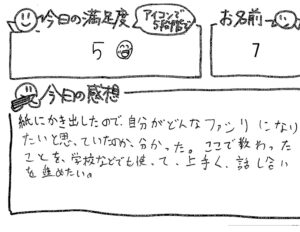 今日の満足度
アイコンで
5段階で
お名前
5
7
今日の感想
紙にかき出したので、自分がどんなファシリになり
たいと思っていたのか、分かった。ここで教わった
ことを、学校などでも使って、上手く、話し合い
を進めたい。